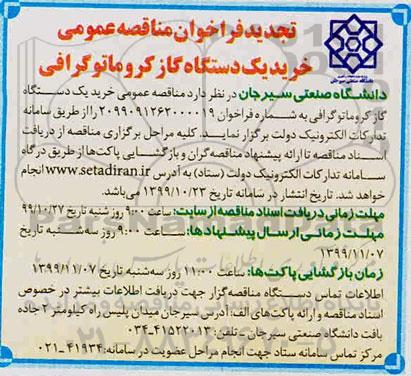 تجدید فراخوان مناقصه عمومی
خرید یک دستگاه گاز کروماتوگرافی
دانشگاه صنعتی سیرجان
دانشگاه صنعتی سیرجان در نظر دارد مناقصه عمومی خرید یک دستگاه
گاز کروماتوگرافی به شماره فراخوان ۲۰۹۹۰۹۱۲۶۲۰۰۰۰۱۹ را از طریق سامانه
تدارکات الکترونیک دولت برگزار نماید. کلیه مراحل برگزاری مناقصه از دریافت
اسناد مناقصه تا ارائه پیشنهاد مناقصه گران و بازگشایی پاکت‌ها از طریق درگاه
سامانه تدارکات الکترونیک دولت (ستاد) به آدرس www.setadiran.ir انجام
خواهد شد. تاریخ انتشار در سامانه تاریخ ۱۳۹۹/۱۰/۲۳ می‌باشد.
مهلت زمانی دریافت اسناد مناقصه از سایت: ساعت ۹:۰۰ روز شنبه تاریخ ۹۹/۱۰/۲۷
مهلت زمانی ارسال پیشنهادها: ساعت ۹:۰۰ روز سه‌شنبه تاریخ
۱۳۹۹/۱۱/۰۷
زمان بازگشایی پاکت‌ها: ساعت ۱۱:۰۰ روز سه‌شنبه تاریخ ۱۳۹۹/۱۱/۰۷
اطلاعات تماس دستگاه مناقصه گزار جهت دریافت اطلاعات بیشتر در خصوص
اسناد مناقصه و ارائه پاکت‌های الف: آدرس سیرجان میدان پلیس راه کیلومتر ۲ جاده
بافت دانشگاه صنعتی سیرجان - تلفن: ۴۱۵۲۲۰۱۳-۰۳۴
مرکز تماس سامانه ستاد جهت انجام مراحل عضویت در سامانه: ۴۱۹۳۴-۰۲۱